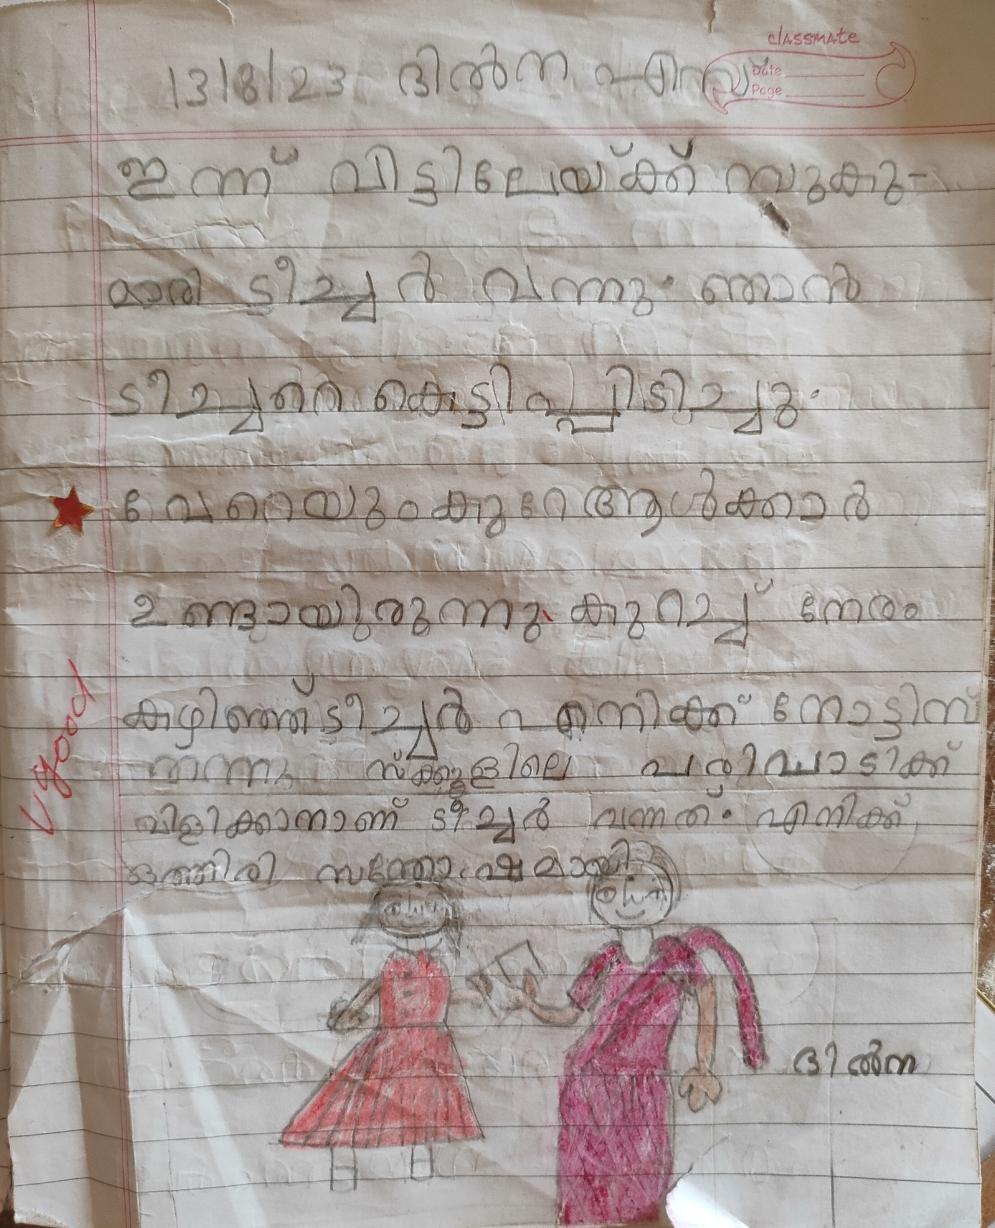 classmate
Date
Page
13/8/23 ദിൽന
ഇന്ന് വിട്ടിലേയ്ക്ക് സുകു-
മാരി ടീച്ചർ വന്നു. ഞാൻ
ടീച്ചറെ കെട്ടിപ്പിടിച്ചു.
വേറെയും കുറേ ആൾക്കാർ
ഉണ്ടായിരുന്നു. കുറച്ച് നേരം
കഴിഞ്ഞ് ടീച്ചർ എനിക്ക് നോട്ടിസ്
തന്നു സ്ക്കൂളിലെ പരിപാടിക്ക്
വിളിക്കാനാണ് ടീച്ചർ വന്നത്. എനിക്ക്
ഒത്തിരി സന്തോഷമായി
V good
ദിൽന